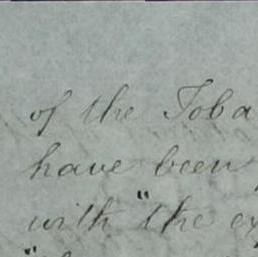 of the Toba
have been
with "the ex